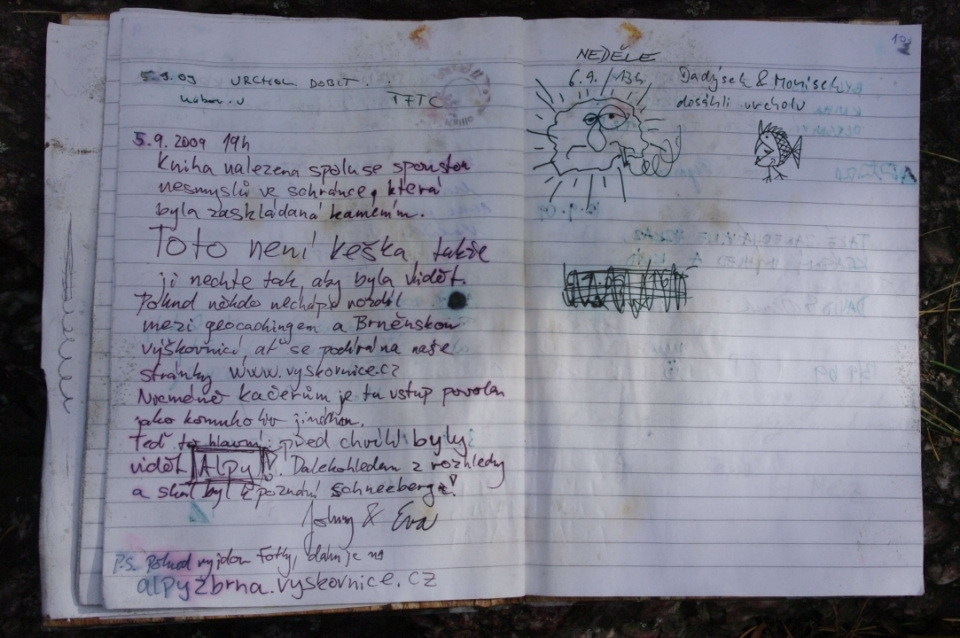 5.9.09 VRCHOL DOBIT.
TFTC
5.9.2009 19h
Kniha nalezena spolu se spoustou
nesmyslů ve schránce, která
byla zaskládaná kamením.
Toto není keška, takže
ji nechte tak, aby byla vidět.
Pokud někdo nechápe rozdíl
mezi geocachingem a Brněnskou
výškovnicí, ať se podívá na naše
stránky www.vyskovnice.cz
Nicméně kačerům je tu vstup povolen
jako komukoliv jinému.
Teď to hlavní: před chvílí byly
vidět Alpy! Dalekohledem z rozhledny
a skal byl k poznání Schneeberg!
Johny & Eva
P.S. Pokud vyjdou fotky, dám je na
alpyzbrna.vyskovnice.cz
NEDĚLE
6.9. /13h
Dadýsek & Monísek
dosáhli vrcholu